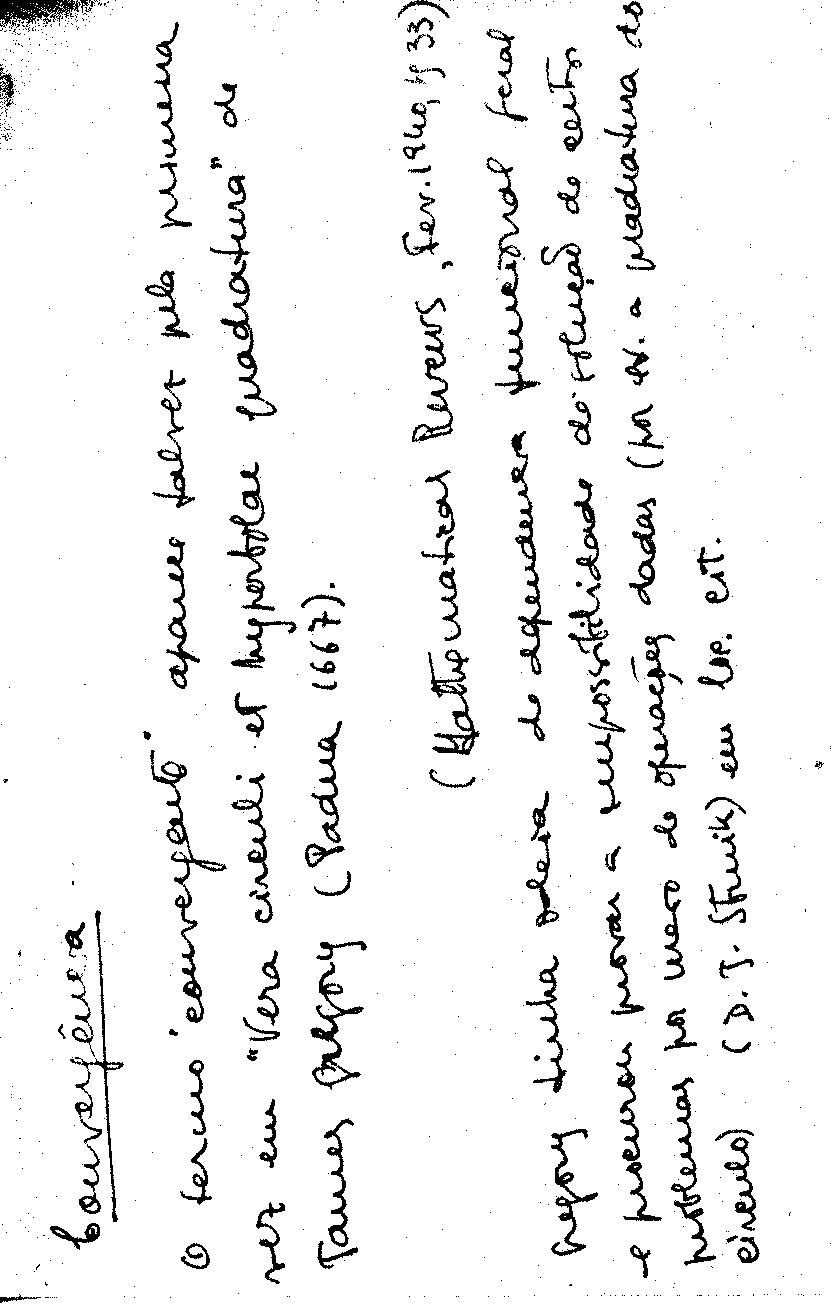 Convergência
O termo "convergente" aparece talvez pela primeira
vez em "Vera circuli et hyperbolae quadratura" de
James Gregory (Padua 1667).
(Mathematical Reviews, Fev. 1940, 1933)
Gregory tinha ideia de dependencia funcional geral
e procurou provar a impossibilidade de solução de certos
problemas por meio de operações dadas (por ex. a quadratura do
circulo) (D. J. Struik) em loc. cit.